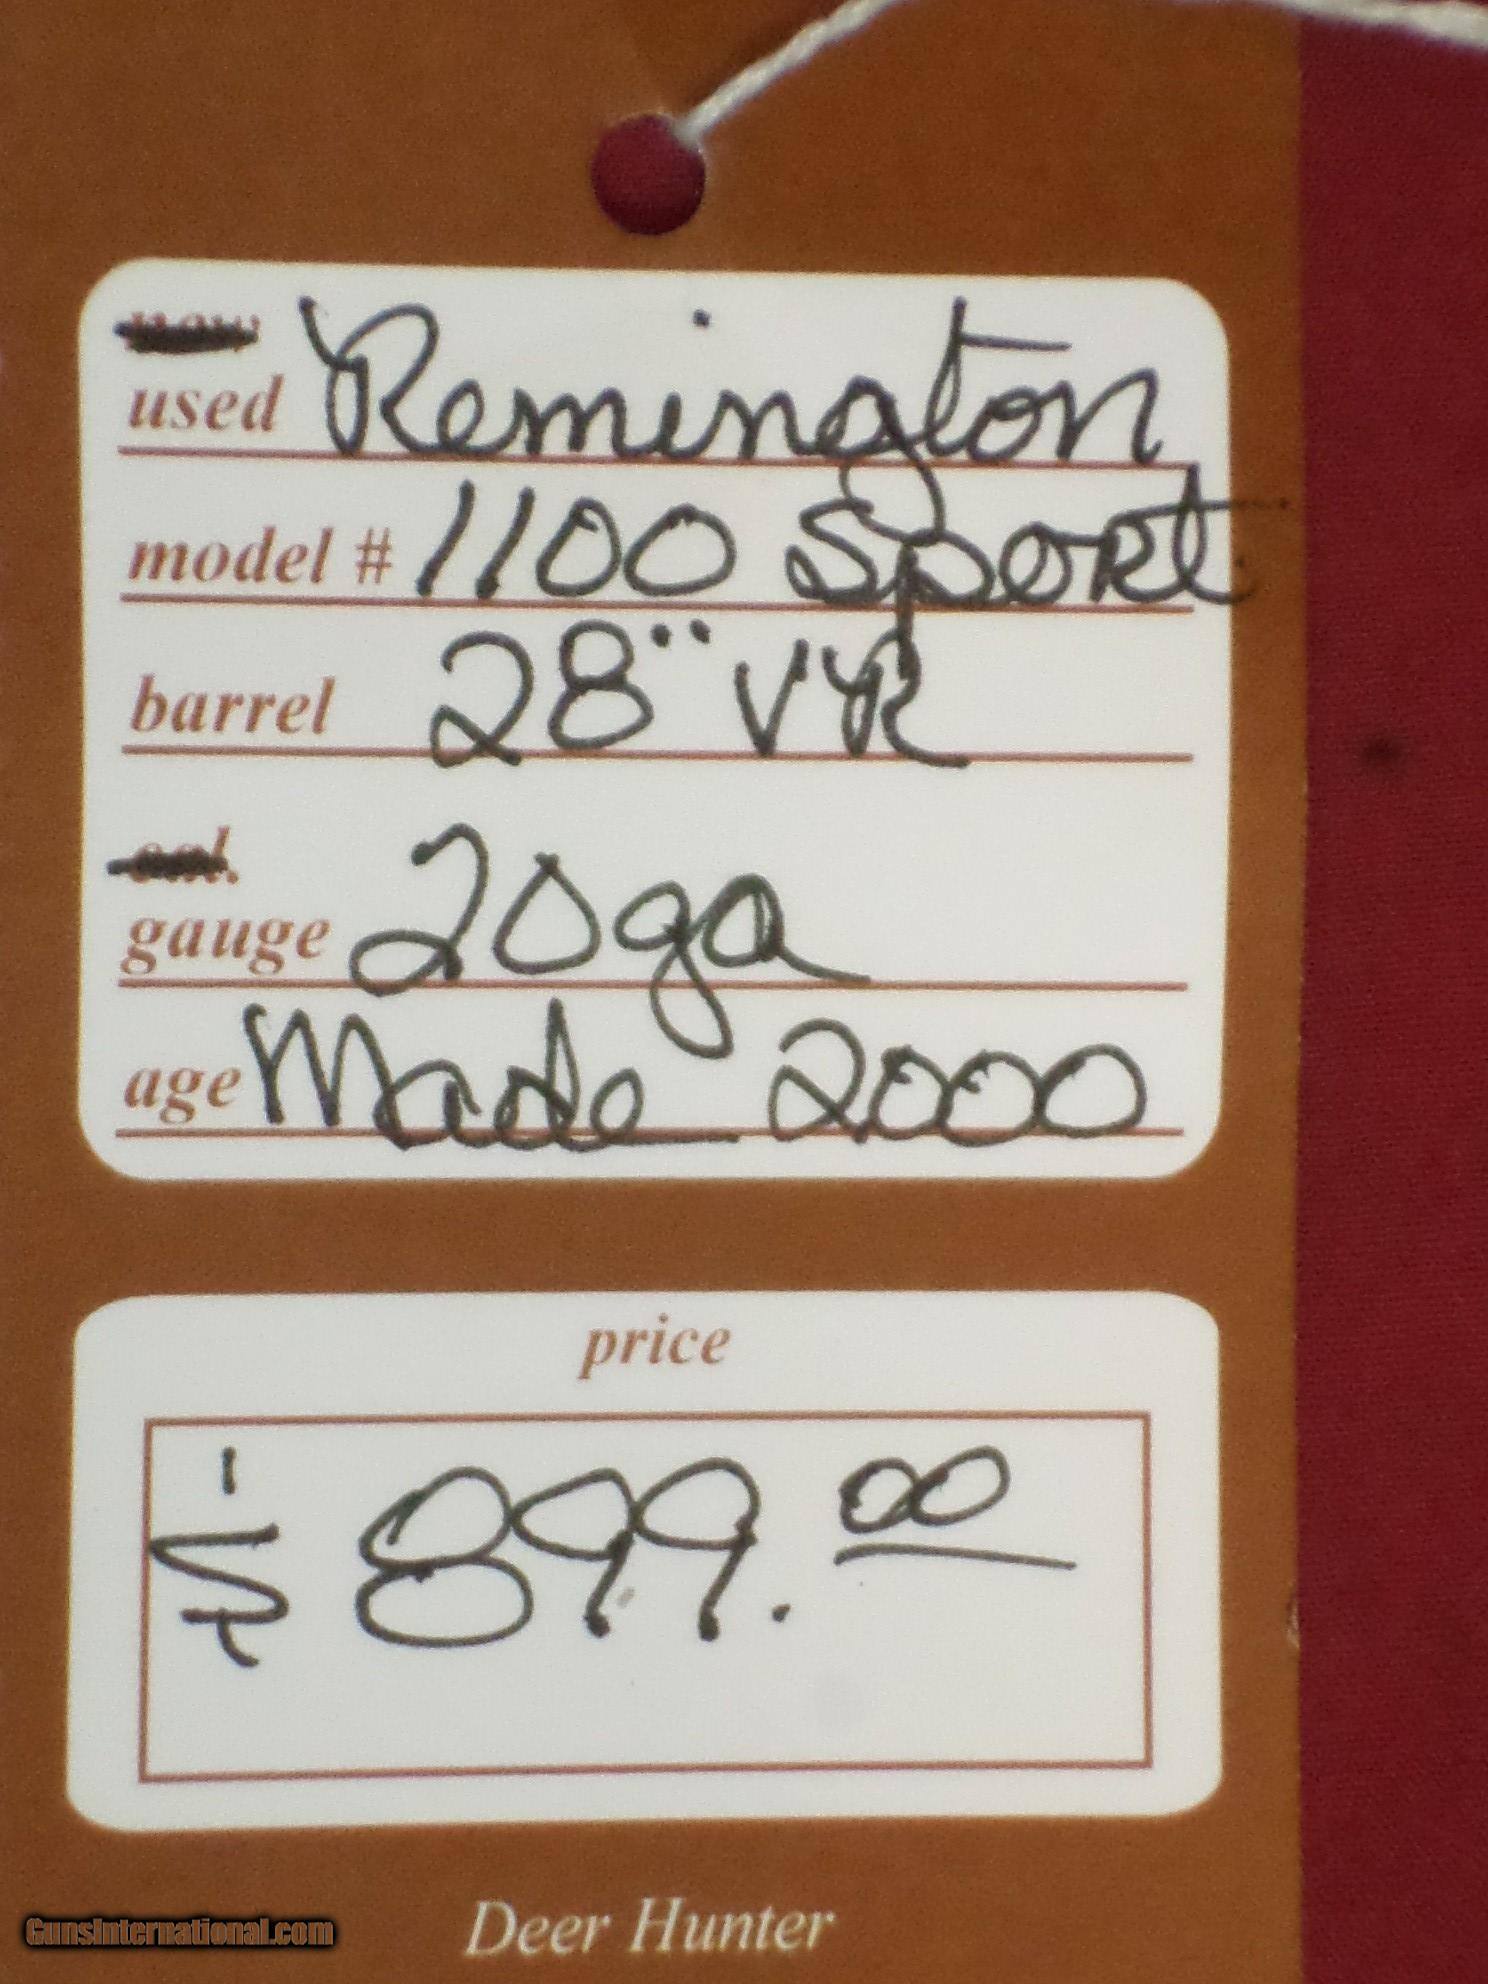 new
used Remington
model # 1100 Sport
barrel 28" VR
cal.
gauge 20ga
age Made 2000
price
$ 899.00
Deer Hunter
GunsInternational.com